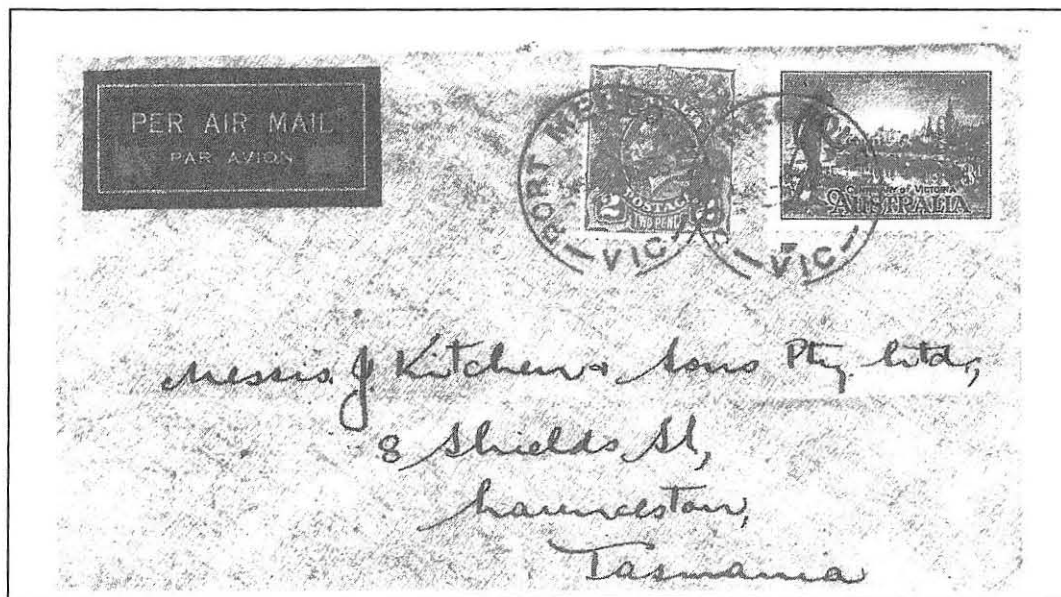 PER AIR MAIL
PAR AVION
PORT MEL
VIC
VIC
POSTAGE
2 2
TWO PENCE
3d
CENTENARY OF VICTORIA
AUSTRALIA
Messrs. J Kitchen & Sons Pty. Ltd,
8 Shields St,
Launceston,
Tasmania